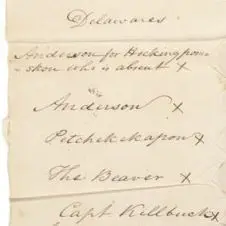 Delawares
Anderson for Hockingpome
- skon who is absent x
Anderson x
Petchekekapon x
The Beaver x
Capt Killbuck x